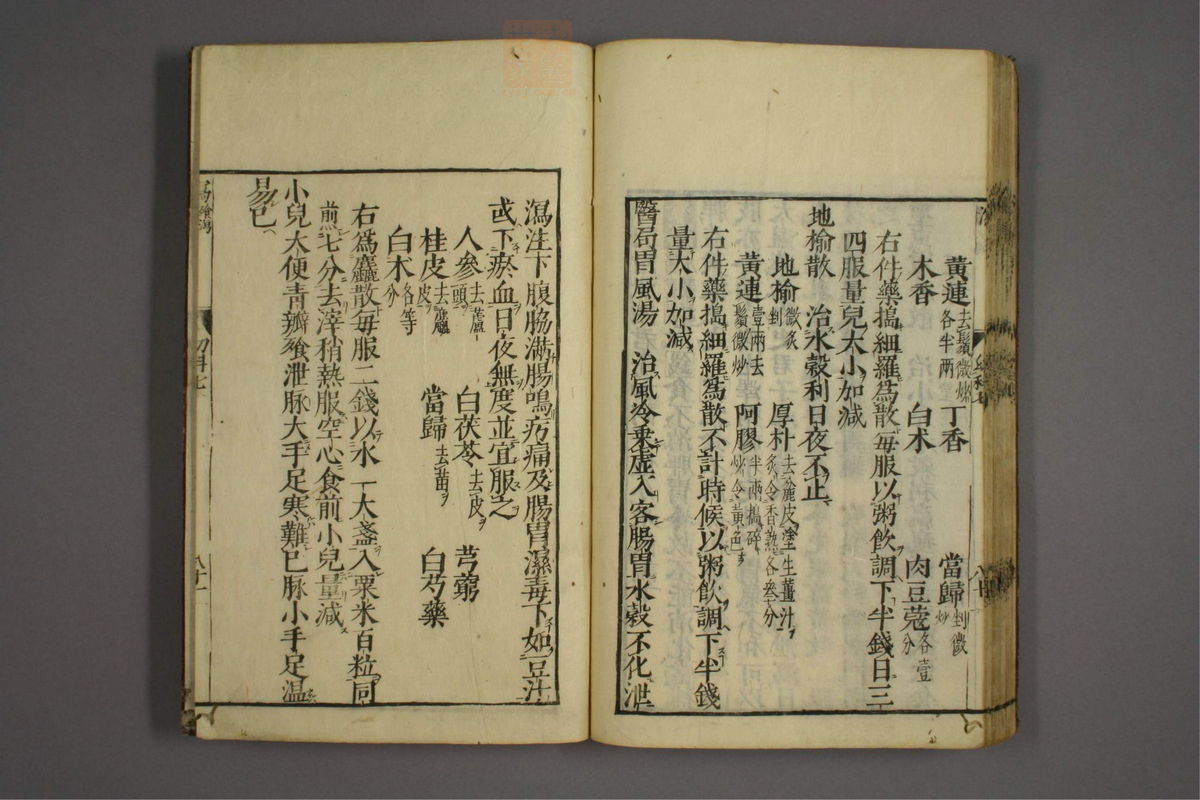 黃連去鬚微炒各半兩　丁香　當歸剉微炒
木香　白朮　肉豆蔻各壹分
右件藥搗細羅爲散每服以粥飲調下半錢日三
四服量兒大小加減
地榆散　治水穀利日夜不止
地榆微炙剉　厚朴去麄皮塗生薑汁炙令香熟各叄分
黃連壹兩去鬚微炒　阿膠半兩搗碎炒令黃色
右件藥搗細羅爲散不計時候以粥飲調下半錢
量大小加減
醫局胃風湯　治風冷乗虛入客腸胃水穀不化泄
瀉注下腹脇滿腸鳴疠痛及腸胃濕毒下如豆汁
或下瘀血日夜無度並宜服之
人參去蘆頭　白茯苓去皮　芎藭
桂皮去麄皮　當歸去苗　白芍藥
白朮各等分
右爲麤散每服二錢以水一大盞入粟米百粒同
煎七分去滓稍熱服空心食前小兒量減
小兒大便青瓣飧泄脉大手足寒難已脉小手足温
易已